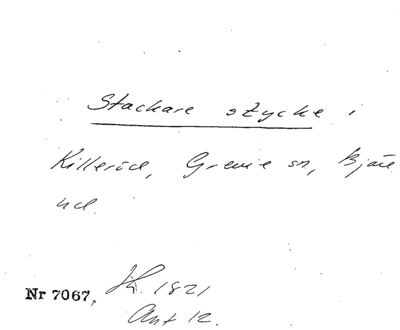 Stackare stycke i
Killeröd, Grevie sn, Bjäre
hd.
Nr 7067, Jk. 1821
Ant 12.